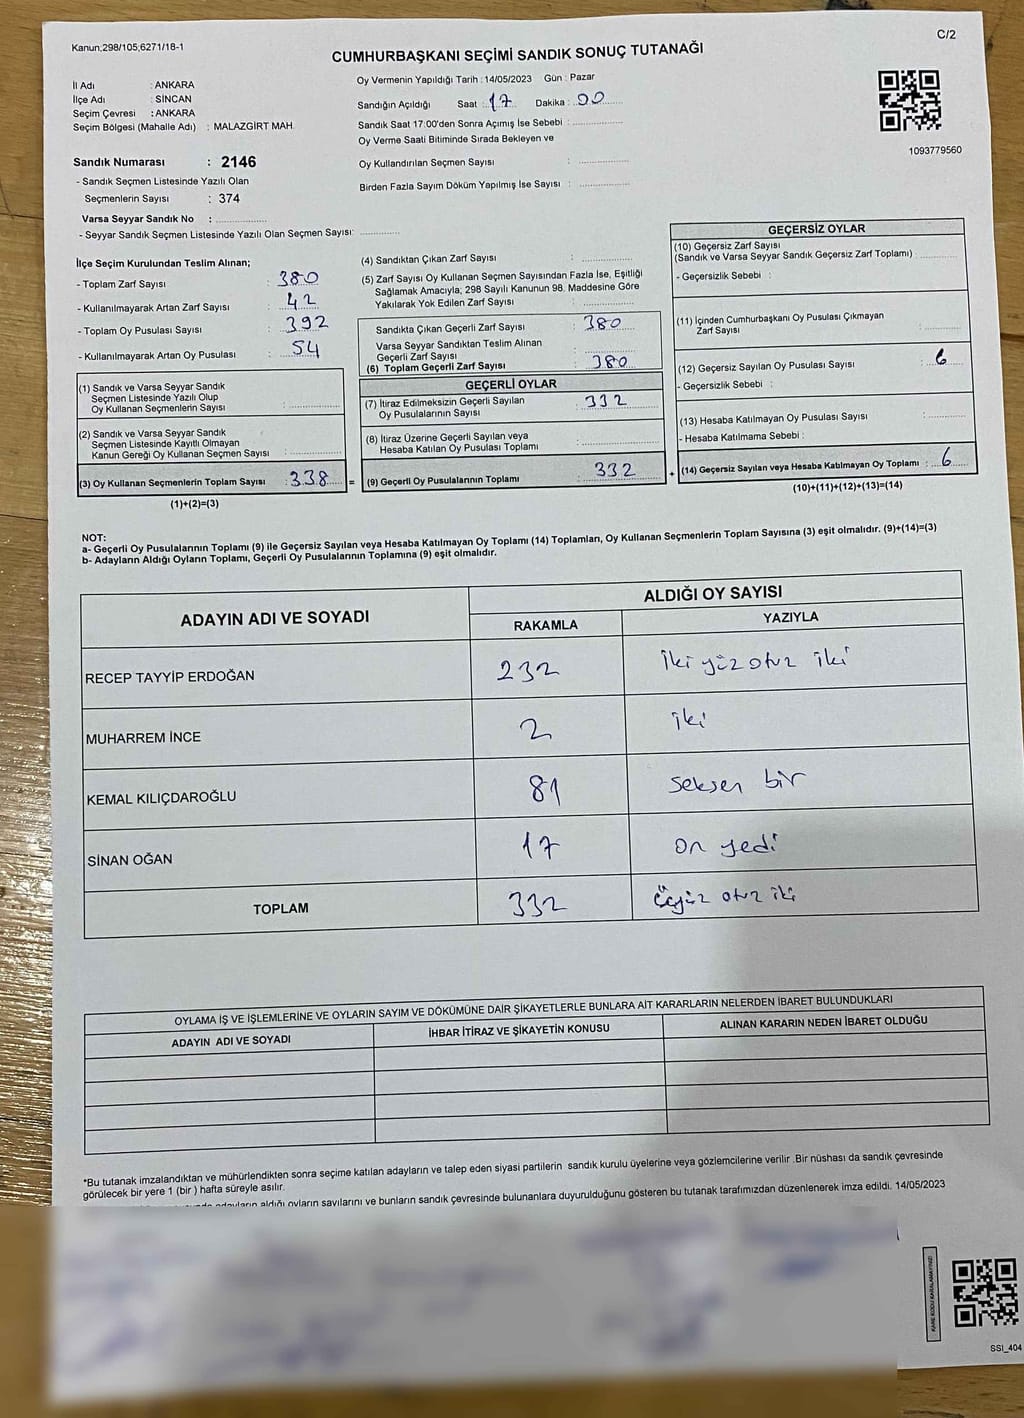 Kanun;298/105;6271/18-1
C/2
CUMHURBAŞKANI SEÇİMİ SANDIK SONUÇ TUTANAĞI
İl Adı : ANKARA
İlçe Adı : SİNCAN
Seçim Çevresi : ANKARA
Seçim Bölgesi (Mahalle Adı) : MALAZGİRT MAH.
Oy Vermenin Yapıldığı Tarih : 14/05/2023 Gün : Pazar
Sandığın Açıldığı Saat : 17 Dakika : 00
Sandık Saat 17:00'den Sonra Açımış İse Sebebi :
Oy Verme Saati Bitiminde Sırada Bekleyen ve
Oy Kullandırılan Seçmen Sayısı :
Birden Fazla Sayım Döküm Yapılmış İse Sayısı :
1093779560
Sandık Numarası : 2146
- Sandık Seçmen Listesinde Yazılı Olan
Seçmenlerin Sayısı : 374
Varsa Seyyar Sandık No :
- Seyyar Sandık Seçmen Listesinde Yazılı Olan Seçmen Sayısı:
İlçe Seçim Kurulundan Teslim Alınan;
- Toplam Zarf Sayısı : 380
- Kullanılmayarak Artan Zarf Sayısı : 42
- Toplam Oy Pusulası Sayısı : 392
- Kullanılmayarak Artan Oy Pusulası : 54
(1) Sandık ve Varsa Seyyar Sandık
Seçmen Listesinde Yazılı Olup
Oy Kullanan Seçmenlerin Sayısı :
(2) Sandık ve Varsa Seyyar Sandık
Seçmen Listesinde Kayıtlı Olmayan
Kanun Gereği Oy Kullanan Seçmen Sayısı :
(3) Oy Kullanan Seçmenlerin Toplam Sayısı : 338 =
(1)+(2)=(3)
(4) Sandıktan Çıkan Zarf Sayısı :
(5) Zarf Sayısı Oy Kullanan Seçmen Sayısından Fazla İse, Eşitliği
Sağlamak Amacıyla; 298 Sayılı Kanunun 98. Maddesine Göre
Yakılarak Yok Edilen Zarf Sayısı :
Sandıkta Çıkan Geçerli Zarf Sayısı : 380
Varsa Seyyar Sandıktan Teslim Alınan
Geçerli Zarf Sayısı :
(6) Toplam Geçerli Zarf Sayısı : 380
GEÇERLİ OYLAR
(7) İtiraz Edilmeksizin Geçerli Sayılan
Oy Pusulalarının Sayısı : 332
(8) İtiraz Üzerine Geçerli Sayılan veya
Hesaba Katılan Oy Pusulası Toplamı :
(9) Geçerli Oy Pusulalarının Toplamı : 332 +
GEÇERSİZ OYLAR
(10) Geçersiz Zarf Sayısı
(Sandık ve Varsa Seyyar Sandık Geçersiz Zarf Toplamı) :
- Geçersizlik Sebebi :
(11) İçinden Cumhurbaşkanı Oy Pusulası Çıkmayan
Zarf Sayısı :
(12) Geçersiz Sayılan Oy Pusulası Sayısı : 6
- Geçersizlik Sebebi :
(13) Hesaba Katılmayan Oy Pusulası Sayısı :
- Hesaba Katılmama Sebebi :
(14) Geçersiz Sayılan veya Hesaba Katılmayan Oy Toplamı : 6
(10)+(11)+(12)+(13)=(14)
NOT:
a- Geçerli Oy Pusulalarının Toplamı (9) ile Geçersiz Sayılan veya Hesaba Katılmayan Oy Toplamı (14) Toplamları, Oy Kullanan Seçmenlerin Toplam Sayısına (3) eşit olmalıdır. (9)+(14)=(3)
b- Adayların Aldığı Oyların Toplamı, Geçerli Oy Pusulalarının Toplamına (9) eşit olmalıdır.
ADAYIN ADI VE SOYADI
ALDIĞI OY SAYISI
RAKAMLA YAZIYLA
RECEP TAYYİP ERDOĞAN 232 iki yüz otuz iki
MUHARREM İNCE 2 iki
KEMAL KILIÇDAROĞLU 81 seksen bir
SİNAN OĞAN 17 on yedi
TOPLAM 332 üçyüz otuz iki
OYLAMA İŞ VE İŞLEMLERİNE VE OYLARIN SAYIM VE DÖKÜMÜNE DAİR ŞİKAYETLERLE BUNLARA AİT KARARLARIN NELERDEN İBARET BULUNDUKLARI
ADAYIN ADI VE SOYADI İHBAR İTİRAZ VE ŞİKAYETİN KONUSU ALINAN KARARIN NEDEN İBARET OLDUĞU
*Bu tutanak imzalandıktan ve mühürlendikten sonra seçime katılan adayların ve talep eden siyasi partilerin sandık kurulu üyelerine veya gözlemcilerine verilir .Bir nüshası da sandık çevresinde
görülecek bir yere 1 (bir ) hafta süreyle asılır.
adayların aldığı oyların sayılarını ve bunların sandık çevresinde bulunanlara duyurulduğunu gösteren bu tutanak tarafımızdan düzenlenerek imza edildi. 14/05/2023
KARE KODU KARALAMAYINIZ!
SSI_404